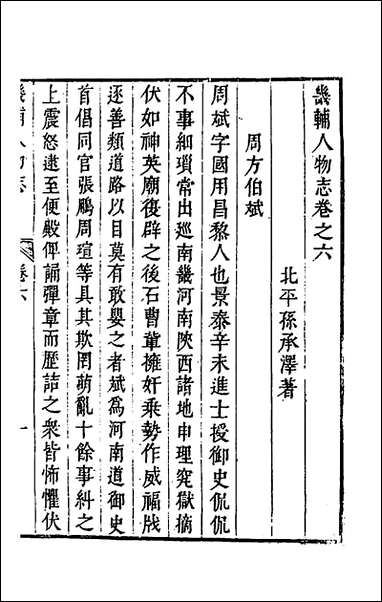 畿輔人物志卷之六
北平孫承澤著
周方伯斌
周斌字國用昌黎人也景泰辛未進士授御史侃侃
不事細瑣常出巡南畿河南陝西諸地申理寃獄摘
伏如神英廟復辟之後石曹軰擁奸乗勢作威福戕
逐善類道路以目莫有敢嬰之者斌為河南道御史
首倡同官張鵬周瑄等具其欺罔萌亂十餘事糾之
上震怒逮至便殿俾誦彈章而歷詰之衆皆怖懼伏
畿輔人物志
卷六
一